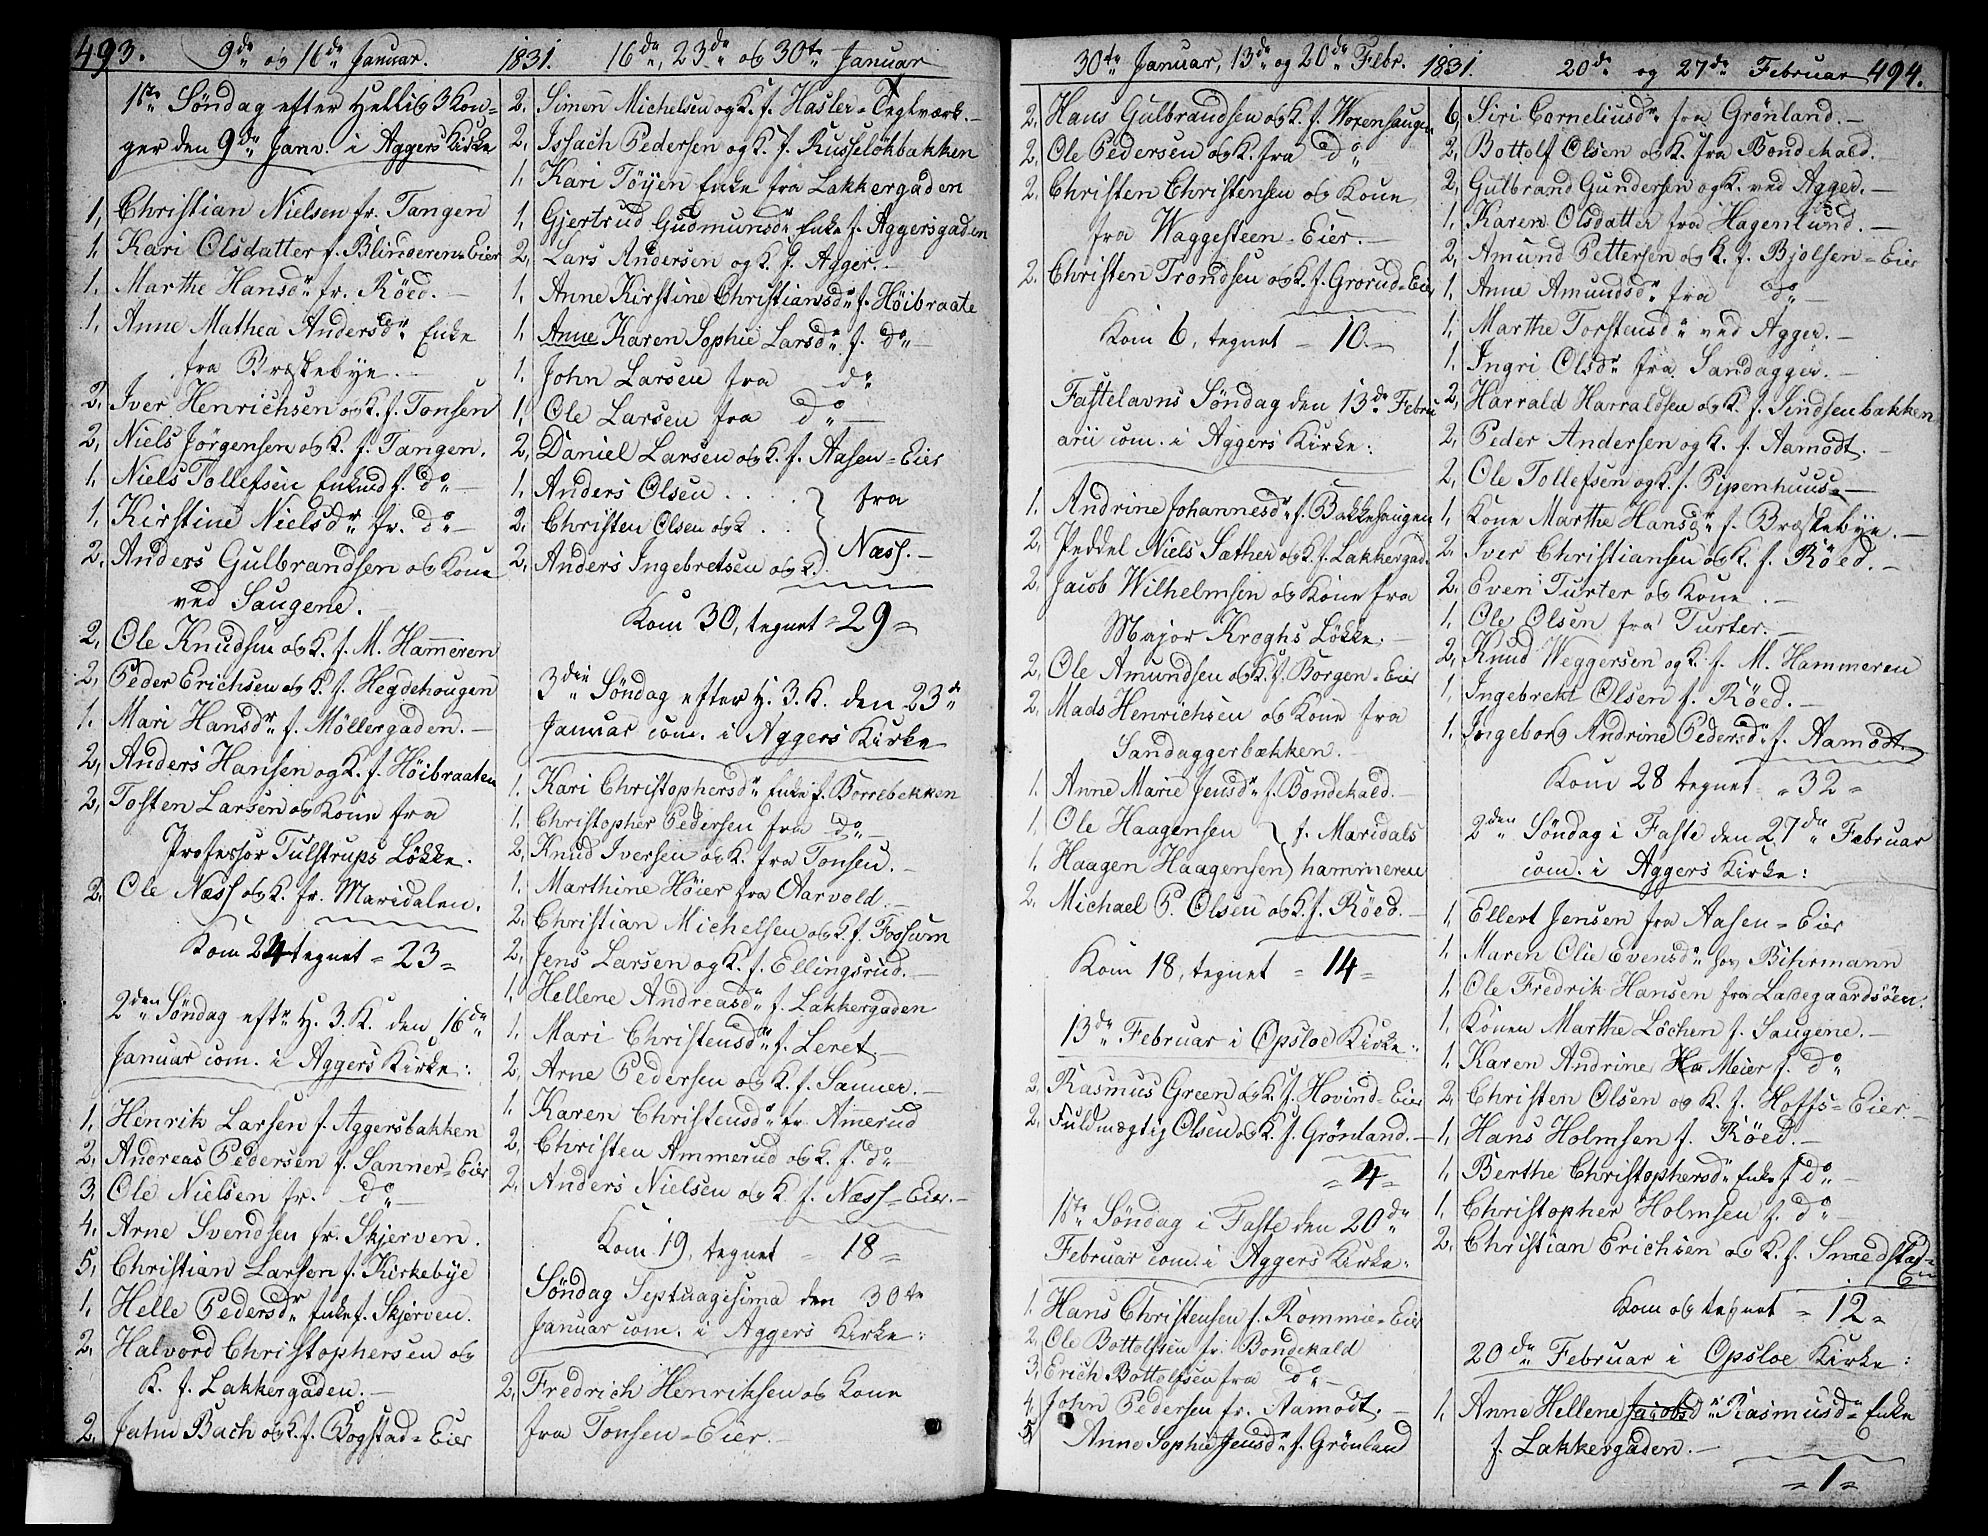 493. 9de og 16de Januar. 1831. 16de, 23de og 30te Januar
1ste Söndag efter Hellig 3 Kon-
ger den 9de Janv. i Aggers Kirke
1, Christian Nielsen fr. Tangen
1. Kari Olsdatter f. Blinderen=Eier
1. Marthe Hansdr fr. Röed. —
1, Anne Mathea Andersdr Enke
fra Bræskebye. —
2, Iver Henrichsen og K. f. Tonsen
2, Niels Jörgensen og K. f. Tangen.
1. Niels Tollefsen Enkmd f. do —
1. Kirstine Nielsdr fr. do —
2. Anders Gulbrandsen og Kone
ved Saugene. —
2. Ole Knudsen og K. f. M. Hammeren
2, Peder Erichsen og K. f. Hegdehougen
1. Mari Hansdr f. Möllergaden. —
2, Anders Hansen og K. f. Höibraaten
2, Tosten Larsen og Kone fra
Professor Tulstrups Lökke.
2. Ole Næss og K. fr. Maridalen.
Kom 24 tegnet = 23 =
2den Söndag eftr H. 3. K. den 16de
Januar com. i Aggers Kirke:
1. Henrik Larsen f. Aggersbakken
2. Andreas Pedersen f. Sanner=Eier
3. Ole Nielsen fr. do —
4. Arne Svendsen fr. Skjerven.
5, Christian Larsen f. Kirkebÿe
1, Helle Pedersdr Enke f. Skjerven.
2, Halvord Christophersen og
K. f. Lakkergaden. —
2, Jahn Bach og K. f. Bogstad=Eier
2. Simen Michelsen og K. f. Hasler=Teglværk. —
2, Issach Pedersen og K. f. Russelökbakken
1, Kari Töyen Enke fra Lakkergaden
1, Gjertrud Gudmunsdr Enke f. Aggersgaden
2, Lars Andersen og K. f. Agger. —
1, Anne Kirstine Christiansdr f. Höibraate
1, Anne Karen Sophie Larsdr f. do —
1. John Larsen fra do
1, Ole Larsen fra do —
2, Daniel Larsen og K. f. Aasen=Eier
1, Anders Olsen . . . . fra
2. Christen Olsen og K . .
2, Anders Ingebretsen og K. Næss. —
Kom 30, tegnet = 29 =
3die Söndag efter H. 3. K. den 23de
Januar com. i Aggers Kirke
1. Kari Christophersdr Enke f. Borrebekken
1, Christopher Pedersen fra do —
2, Knud Iversen og K. fra Tonsen. —
1. Marthine Höier fra Aarvold. —
2. Christian Michelsen og K. f. Fossum
2, Jens Larsen og K. f. Ellingsrud. —
1, Hellene Andreasdr f. Lakkergaden
1. Mari Christensdr f. Leret —
2, Arne Pedersen og K. f. Sanner. —
1. Karen Christensdr fr Amerud
2, Christen Ammerud og K. f. do
2, Anders Nielsen og K. f. Næss=Eier. —
Kom 19, tegnet = 18 =
Söndag Septuagesima den 30te
Januar com. i Aggers Kirke:
2, Fredrich Henriksen og Kone
fra Tonsen=Eier. —
30te Januar, 13de og 20de Febr. 1831. 20de og 27de Februar 494.
2, Hans Gulbrandsen og K. f. Vorenhaugen
2, Ole Pedersen og K. fra do
2. Christen Christensen og Kone
fra Waggesteen=Eier. —
2. Christen Trondsen og K. f. Grorud=Eier
Kom 6, tegnet = 10. =
Fastelavns Söndag den 13de Febru
arii com. i Aggers Kirke:
1. Andrine Johannesdr f. Bakkehaugen
2, Peddel Niels Sæther og K. f. Lakkergad.
2. Jacob Wilhelmsen og Kone fra
Major Kroghs Lökke. —
2, Ole Amundsen og K. f. Borgen=Eier
2. Mads Henrichsen og Kone fra
Sandaggerbækken. —
1. Anne Marie Jensdr f. Bondekald. —
1, Ole Haagensen f. Maridals
1. Haagen Haagensen hammeren
2. Michael P. Olsen og K. f. Röed. —
Kom 18, tegnet = 14 =
13de Februar i Opsloe Kirke:
2. Rasmus Green og K. f. Hovind=Eier
2. Fuldmægtig Olsen og K. f. Grönland. —
= 4 =
1ste Söndag i Faste den 20de
Februar com. i Aggers Kirke:
1. Hans Christensen f. Rommie=Eier
2, Ole Bottolfsen fr. Bondekald
3, Erich Bottolfsen fra do —
4, John Pedersen fr. Aamodt. —
5, Anne Sophie Jensdr f. Grönland
6, Siri Corneliusdr fra Grönland. —
2, Bottolf Olsen og K. fra Bondekald. —
2, Gulbrand Gundersen og K. ved Agger. —
1. Karen Olsdatter fra Hagenlund. —
2, Amund Pettersen og K. f. Bjölsen=Eier
1, Anne Amundsdr fra do —
1, Marthe Torstensdr ved Agger. —
1. Ingri Olsdr fra Sandagger. —
2, Harrald Harraldsen og K. f. Sindsenbakken
2, Peder Andersen og K. f. Aamodt. —
2, Ole Tollefsen og K. f. Pipenhuus —
1, Kone Marthe Hansdr f. Bræskebÿe. —
2. Iver Christiansen og K. f. Röed. —
2, Even Turter og Kone . —
1. Ole Olsen fra Turter. —
2, Knud Weggersen og K. f. M. Hammeren
1, Ingebrekt Olsen f. Röed. —
1. Ingeborg Andrine Pedersdr f. Aamodt
Kom 28 tegnet = 32 =
2den Söndag i Faste den 27de Februar
com. i Aggers Kirke:
1. Ellert Jensen fra Aasen=Eier
1. Maren Olie Evensdr hos Bihrmann
1. Ole Fredrik Hansen fra Ladegaardsöen.
1. Konen Marthe Löchen f. Saugene. —
1. Karen Andrine Ha Meier f. do
2. Christen Olsen og K. f. Hoffs=Eier —
1, Hans Holmsen f. Röed. —
1. Berthe Christophersdr Enke f do —
1. Christopher Holmsen f. do —
2. Christian Erichsen og K. f. Smedstad=
Eier
Kom og tegnet = 12 =
20de Februar i Opsloe Kirke:
1, Anne Hellene Jacobsd Rasmusdr Enke
f. Lakkergaden. —
= 1 =